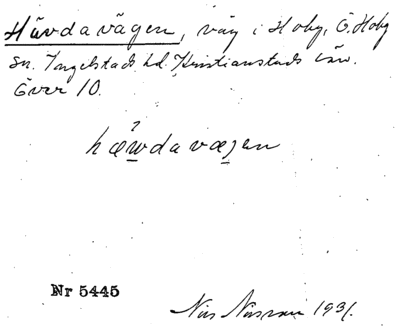 Hävdavägen, väg i Hoby, Ö. Hoby
sn. Ingelstads hd. Kristianstads län.
Över 10.
hæwdavægen
Nr 5445
Nils Nilsson 1931.